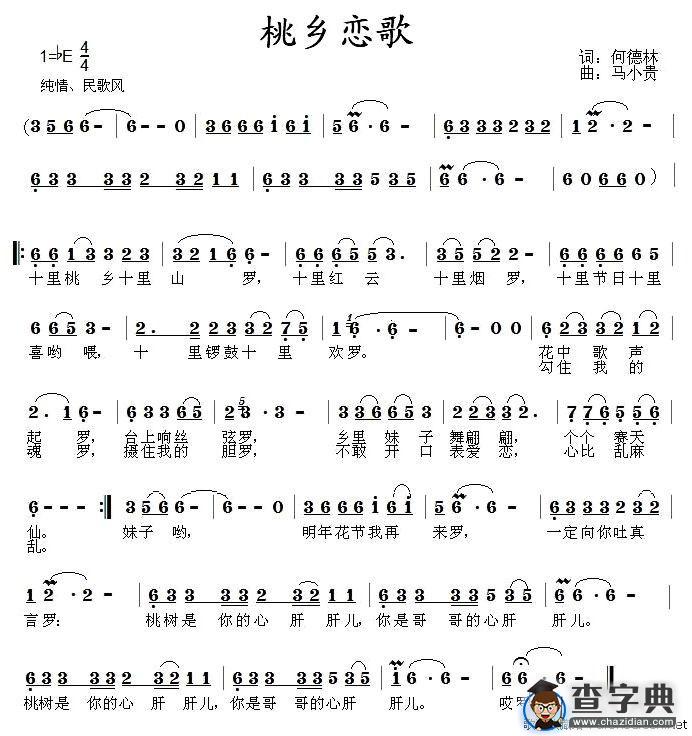 桃乡恋歌
1=♭E 4/4
词：何德林
曲：马小贵
纯情、民歌风
(3 5 6 6 - | 6 - - 0 | 3 6 6 6 i 6 i | 5 6 · 6 - | 6 3 3 3 2 3 2 | 1 2 · 2 - |
6 3 3 3 3 2 3 2 1 1 | 6 3 3 3 3 5 3 5 | 6 6 · 6 - | 6 0 6 0 )
6 6 1 3 3 2 3 | 3 2 1 6 6 - | 6 6 6 5 5 3 | 3 5 5 2 2 | 6 6 6 6 6 5
十里桃 乡十里 山 罗， 十里红 云 十里烟 罗， 十里节日十里
6 6 5 3 - | 2 . 2 2 3 3 2 7 5 | 1 6 · 6 - | 6 - 0 0 | 6 2 3 3 2 1 2
喜哟 喂， 十 里锣鼓十 里 欢罗。 花中 歌 声
勾住 我 的
2 . 1 6 - | 6 3 3 6 5 | 2 3 · 3 | 3 3 6 6 5 3 | 2 2 3 3 2 . | 7 7 6 5 5 6
起 罗， 台上响丝 弦罗， 乡里 妹 子 舞翩 翩， 个个 赛天
魂 罗， 摄住我的 胆罗， 不敢 开 口 表爱 恋， 心比 乱麻
6 - - - :| 3 5 6 6 - | 6 - 0 0 | 3 6 6 6 i 6 i | 5 6 · 6 - | 6 3 3 3 2 3 2
仙。 妹子 哟， 明年花节我再 来罗， 一定向你吐真
乱。
1 2 · 2 - | 6 3 3 3 3 2 3 2 1 1 | 6 3 3 3 3 5 3 5 | 6 6 · 6 - |
言罗： 桃树是 你的心 肝 肝儿， 你是哥 哥的心肝 肝儿。
6 3 3 3 3 2 3 2 1 1 | 6 3 3 3 3 5 3 5 | 1 6 · 6 - | 6 6 · 6 -
桃树是 你的心 肝 肝儿， 你是哥 哥的心肝 肝儿。 哎罗
查字典
www.chazidian.com